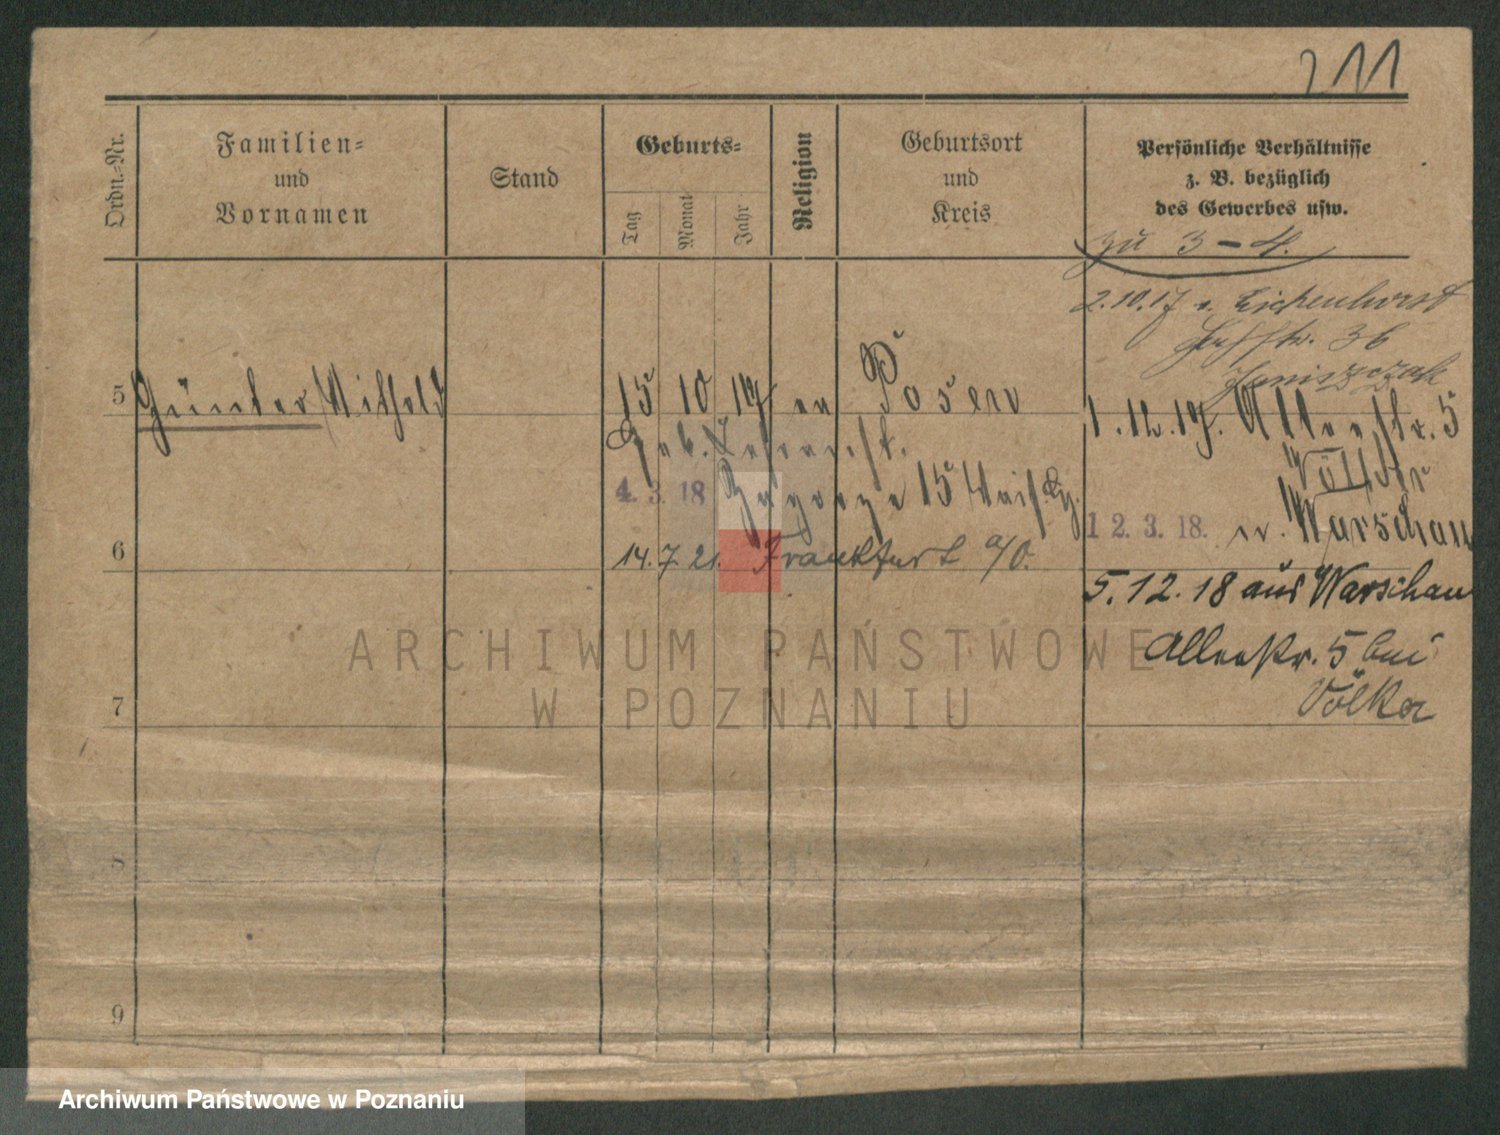 211
Ordn.-Nr.
Familien-
und
Vornamen
Stand
Geburts-
Tag
Monat
Jahr
Religion
Geburtsort
und
Kreis
Persönliche Verhältnisse
z. B. bezüglich
des Gewerbes usw.
zu 3-4.
2.10.17 v. Eichenhorst
36
5 Günter 15 10 17 ev Posen
1.12.17. Alleestr. 5
4.3.18 15
12.3.18. n. Warschau
6 14.7.21. Frankfurt a/O.
5.12.18 aus Warschau
Alleestr. 5 bei
Völker
7
8
9
ARCHIWUM PAŃSTWOWE
W POZNANIU
Archiwum Państwowe w Poznaniu